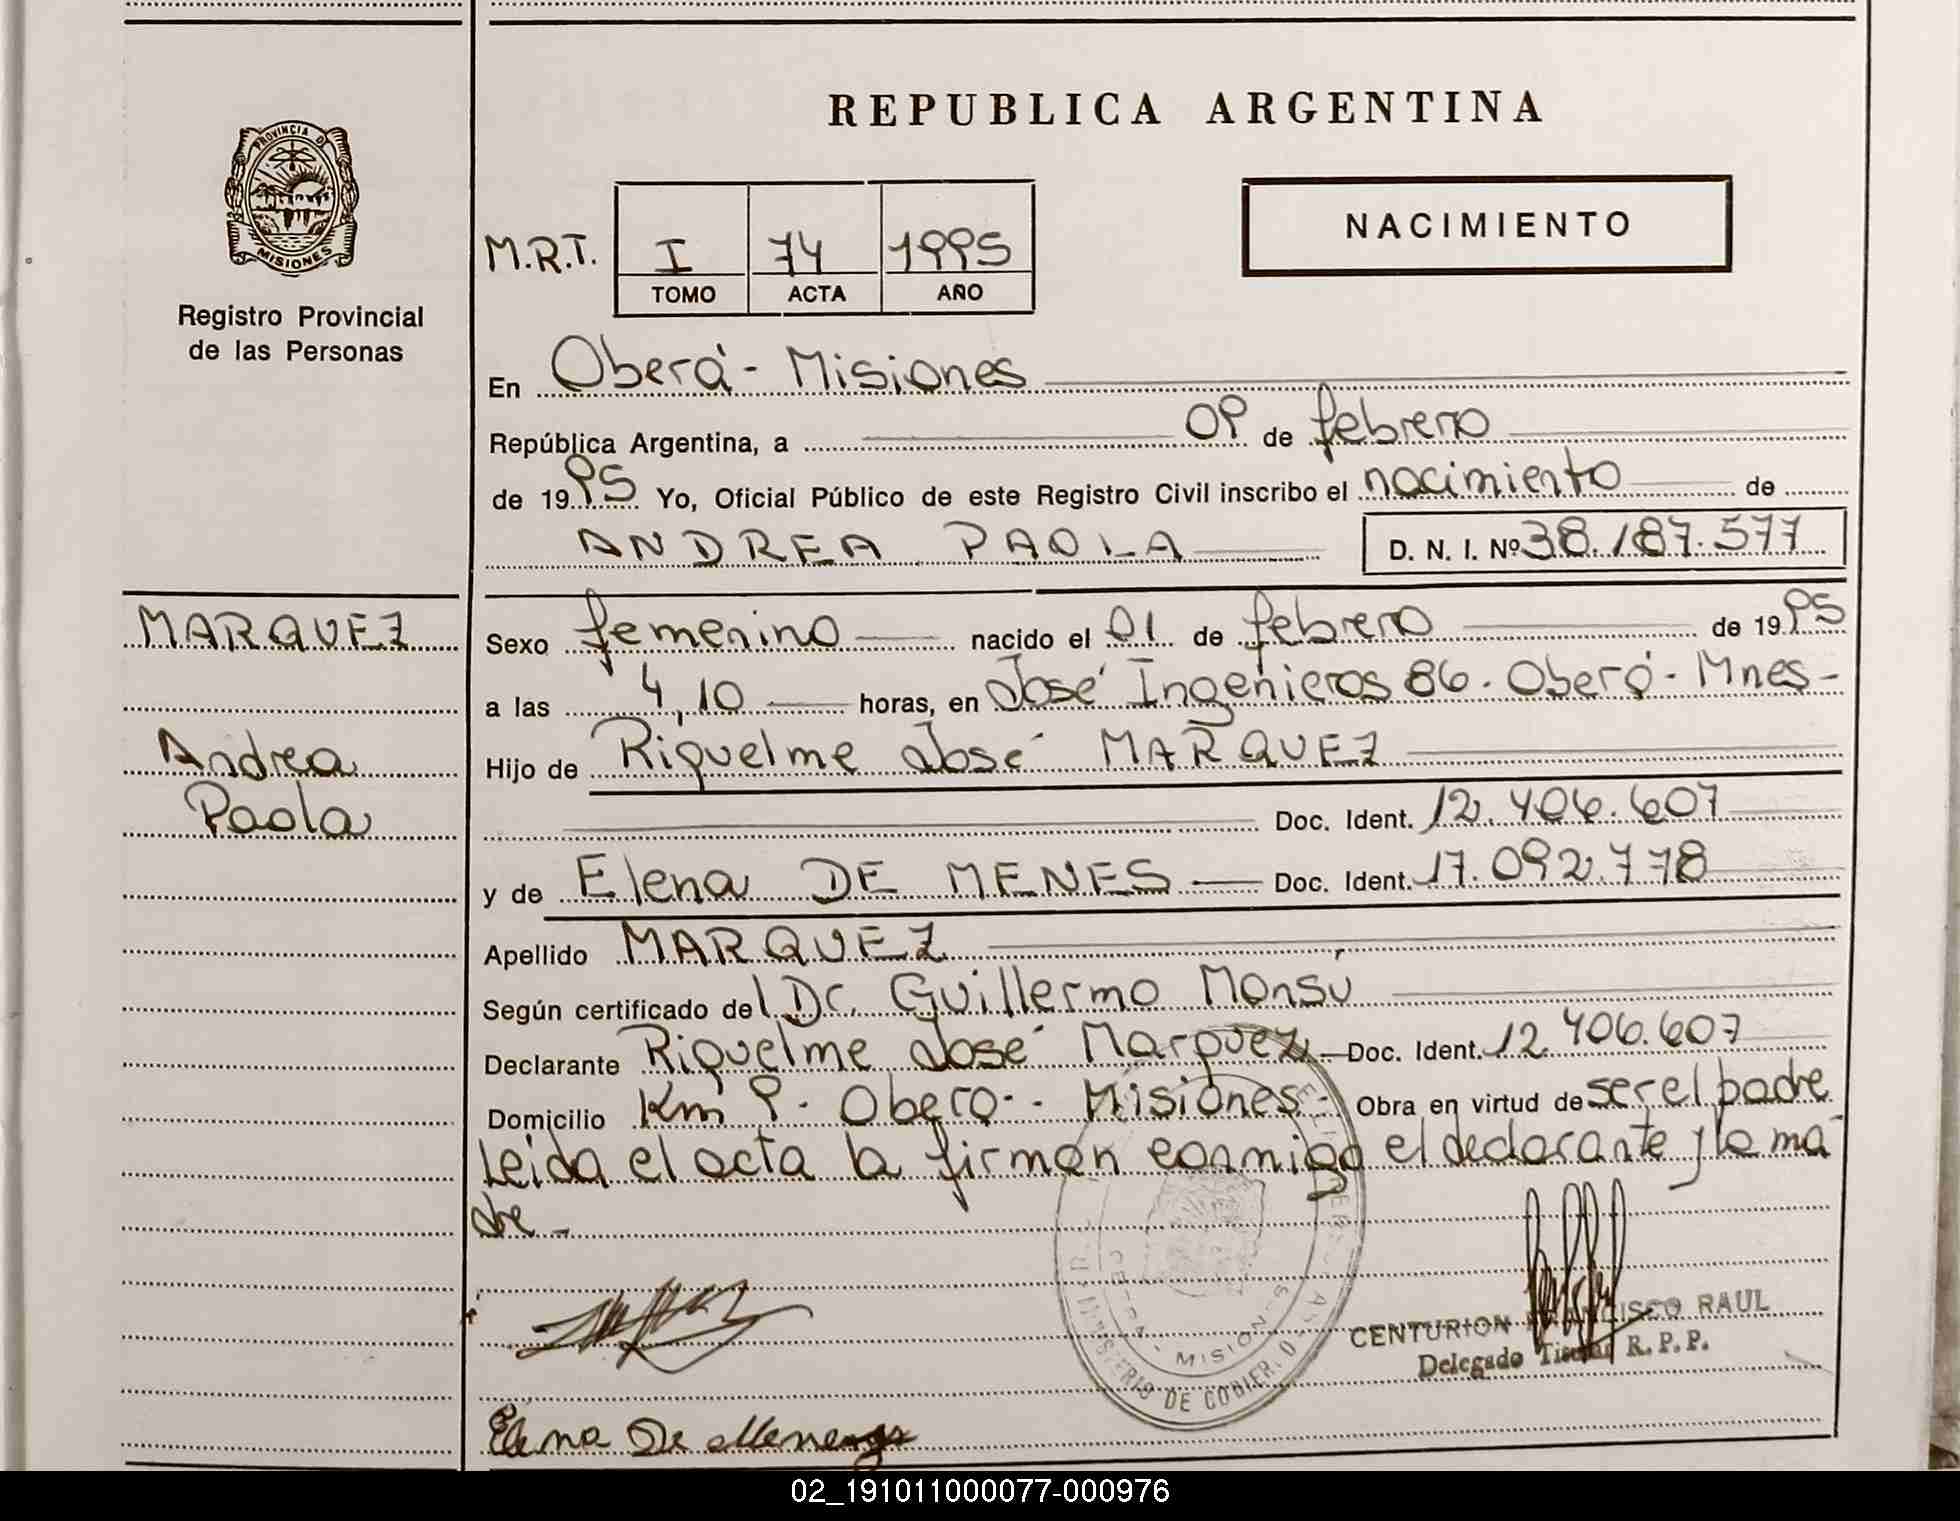 REPUBLICA ARGENTINA
PROVINCIA DE
MISIONES
Registro Provincial
de las Personas
NACIMIENTO
M.R.T. I 74 1995
TOMO ACTA AÑO
En Oberá - Misiones
República Argentina, a 09 de febrero
de 1995 Yo, Oficial Público de este Registro Civil inscribo el nacimiento de
ANDREA PAOLA D. N. I. Nº 38.187.577
MARQUEZ
Andrea
Paola
Sexo femenino nacido el 01 de febrero de 1995
a las 4,10 horas, en José Ingenieros 86. Oberá - Mnes -
Hijo de Riquelme José MARQUEZ
Doc. Ident. 12.406.607
y de Elena DE MENES Doc. Ident. 17.092.778
Apellido MARQUEZ
Según certificado del Dr. Guillermo Monsú
Declarante Riquelme José Marquez Doc. Ident. 12.406.607
Domicilio Km 9. Oberá - Misiones - Obra en virtud de ser el padre
Leida el acta la firman conmigo el declarante y la ma
dre -
CENTURION FRANCISCO RAUL
Delegado Titular R. P. P.
MISIONES
MINISTERIO DE GOBIER
Elena De
02_191011000077-000976